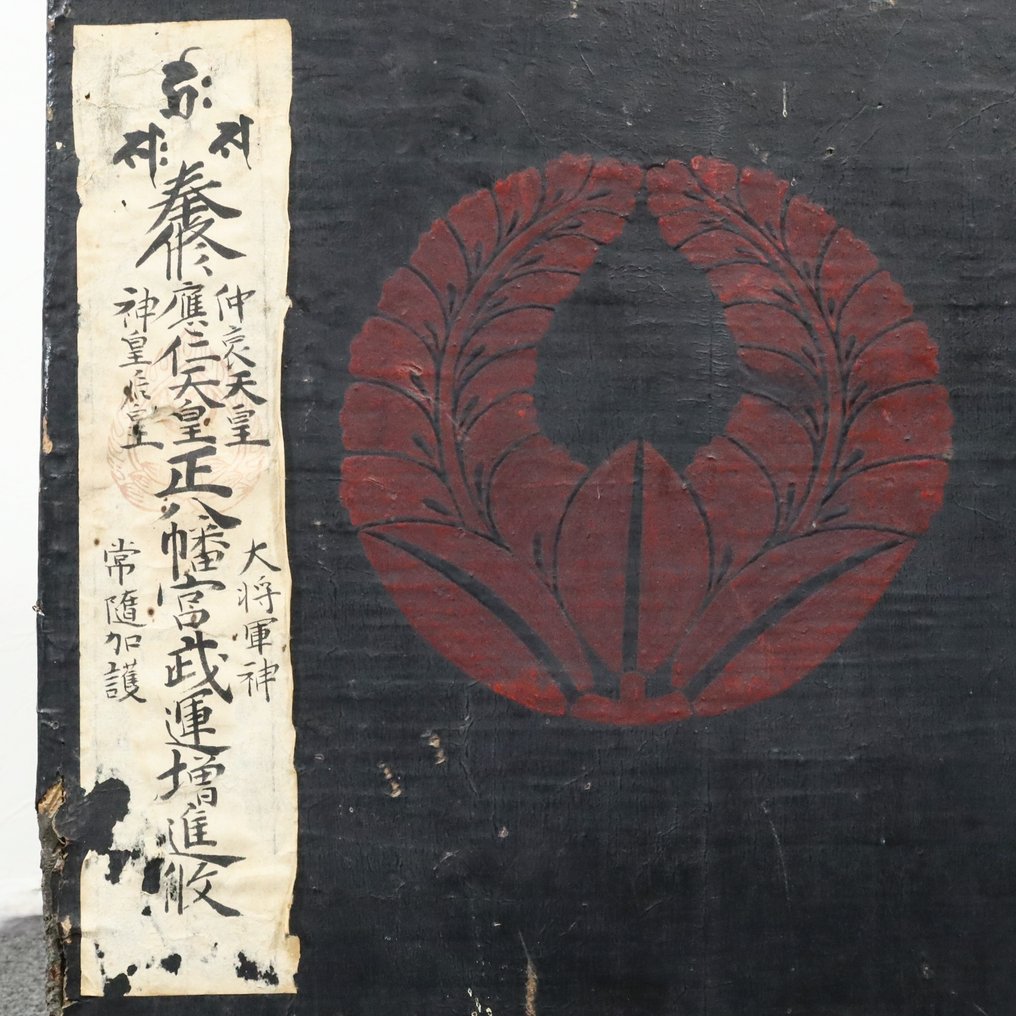 奉修
仲哀天皇
應仁天皇
神皇后皇
正八幡宮武運増進收
大将軍神
常隨加護